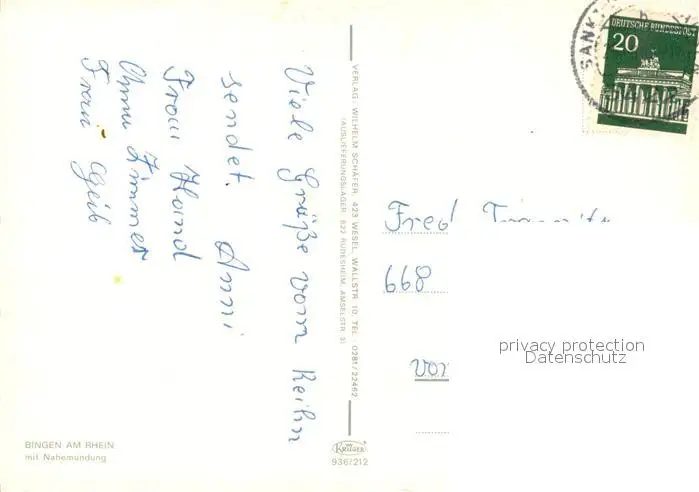 Viele Grüße vom Reihn
sendet. Anni
Frau Hand
Oma Zimmer
Frau Geib
BINGEN AM RHEIN
mit Nahemündung
VERLAG: WILHELM SCHÄFER, 423 WESEL, WALLSTR. 10, TEL. 0281/22462
(AUSLIEFERUNGSLAGER: 622 RÜDESHEIM, AMSELSTR. 5)
KRÜGER
936/212
SANKT
DEUTSCHE BUNDESPOST
20
Fred
668
privacy protection
Datenschutz